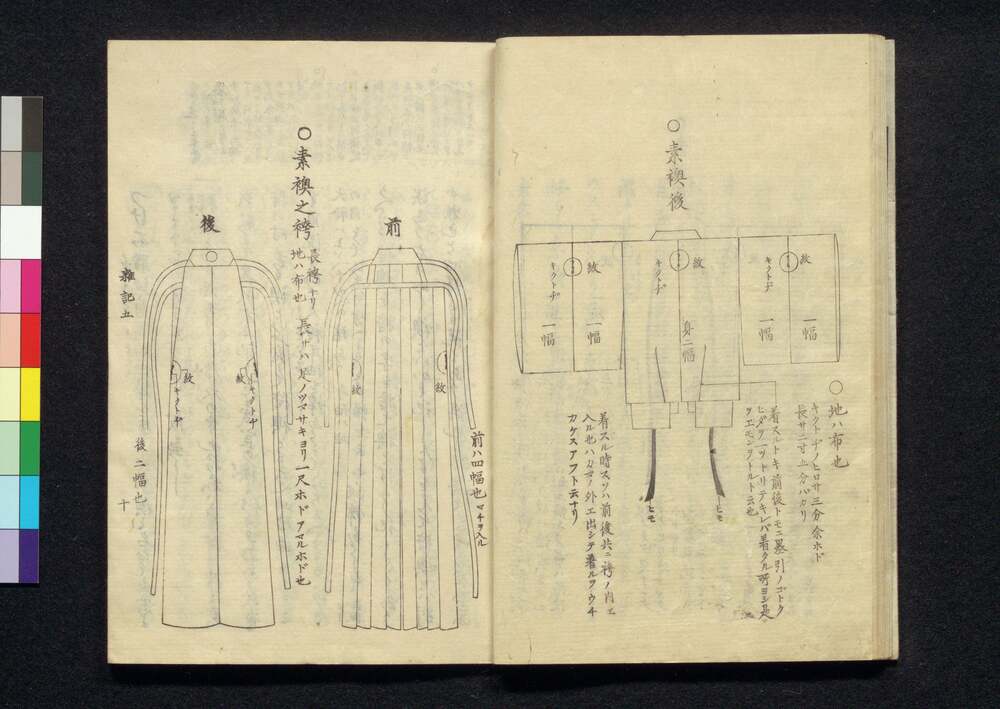 ○素襖後
紋
キクトヂ
一幅
一幅
紋
キクトヂ
身二幅
紋
キクトヂ
一幅
一幅
ヒモ
ヒモ
○地ハ布也
キクトヂノヒロサ三分余ホド
長サ二寸五分バカリ
着スルトキ前後トモニ
ヒダヲ一ツトリテ
着スル時スソハ前後共ニ袴ノ内エ
入ル也ハカマノ外エ出シテ着ルヲウチ
カケスアフト云ナリ
○素襖之袴
長袴ナリ
地ハ布也
長サハ足ノツマサキヨリ一尺ホドアマルホド也
前
紋
紋
前ハ四幅也
マチヲ入ル
後
紋
キクトヂ
紋
キクトヂ
後二幅也
雑記五
十